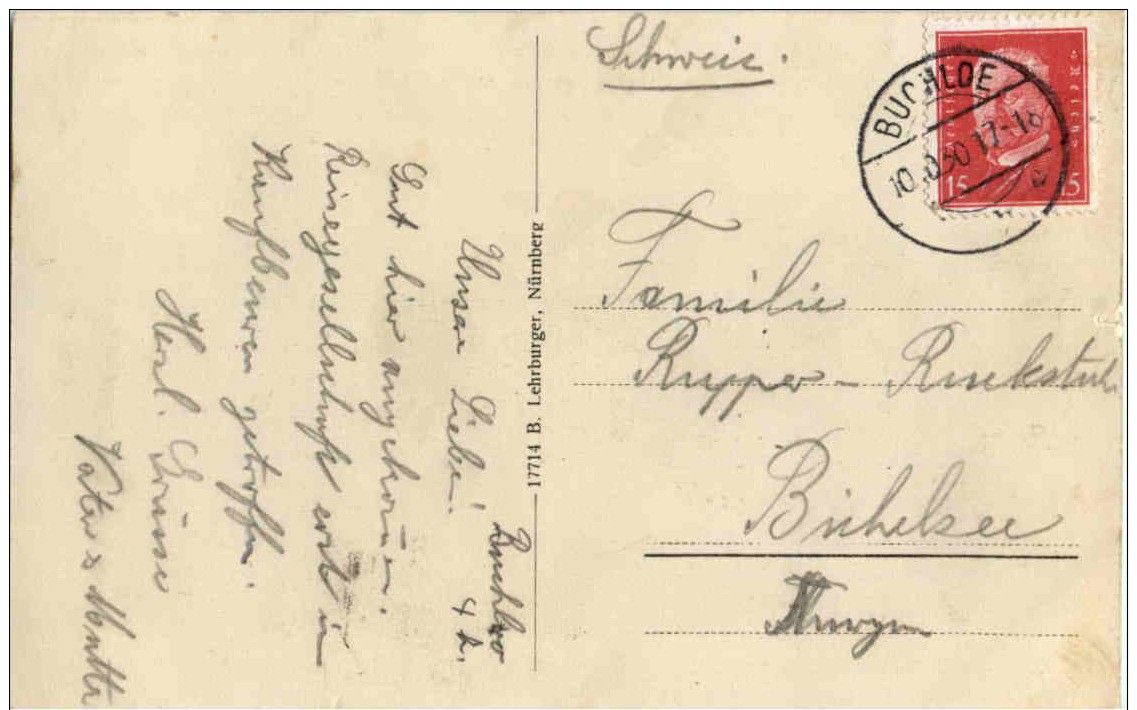 Buchloe
4 h.
Unsere Liebe!
Gut hier angekommen.
Reisegesellschaft erst in
Kaufbeuren getroffen.
Herzl. Grüsse
Vater & Mutter
17714 B. Lehrburger, Nürnberg
Schweiz.
BUCHLOE
10 30 17-18
15 15
Familie
Rupper - Ruckstuhl
Bichelsee